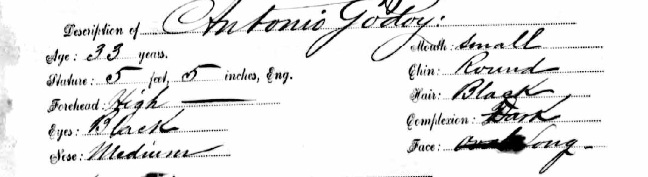 Description of Antonio Godoy:
Age: 33 years.
Stature: 5 feet, 5 inches, Eng.
Forehead: High
Eyes: Black
Nose: Medium
Mouth: Small
Chin: Round
Hair: Black
Complexion: Dark
Face: Long